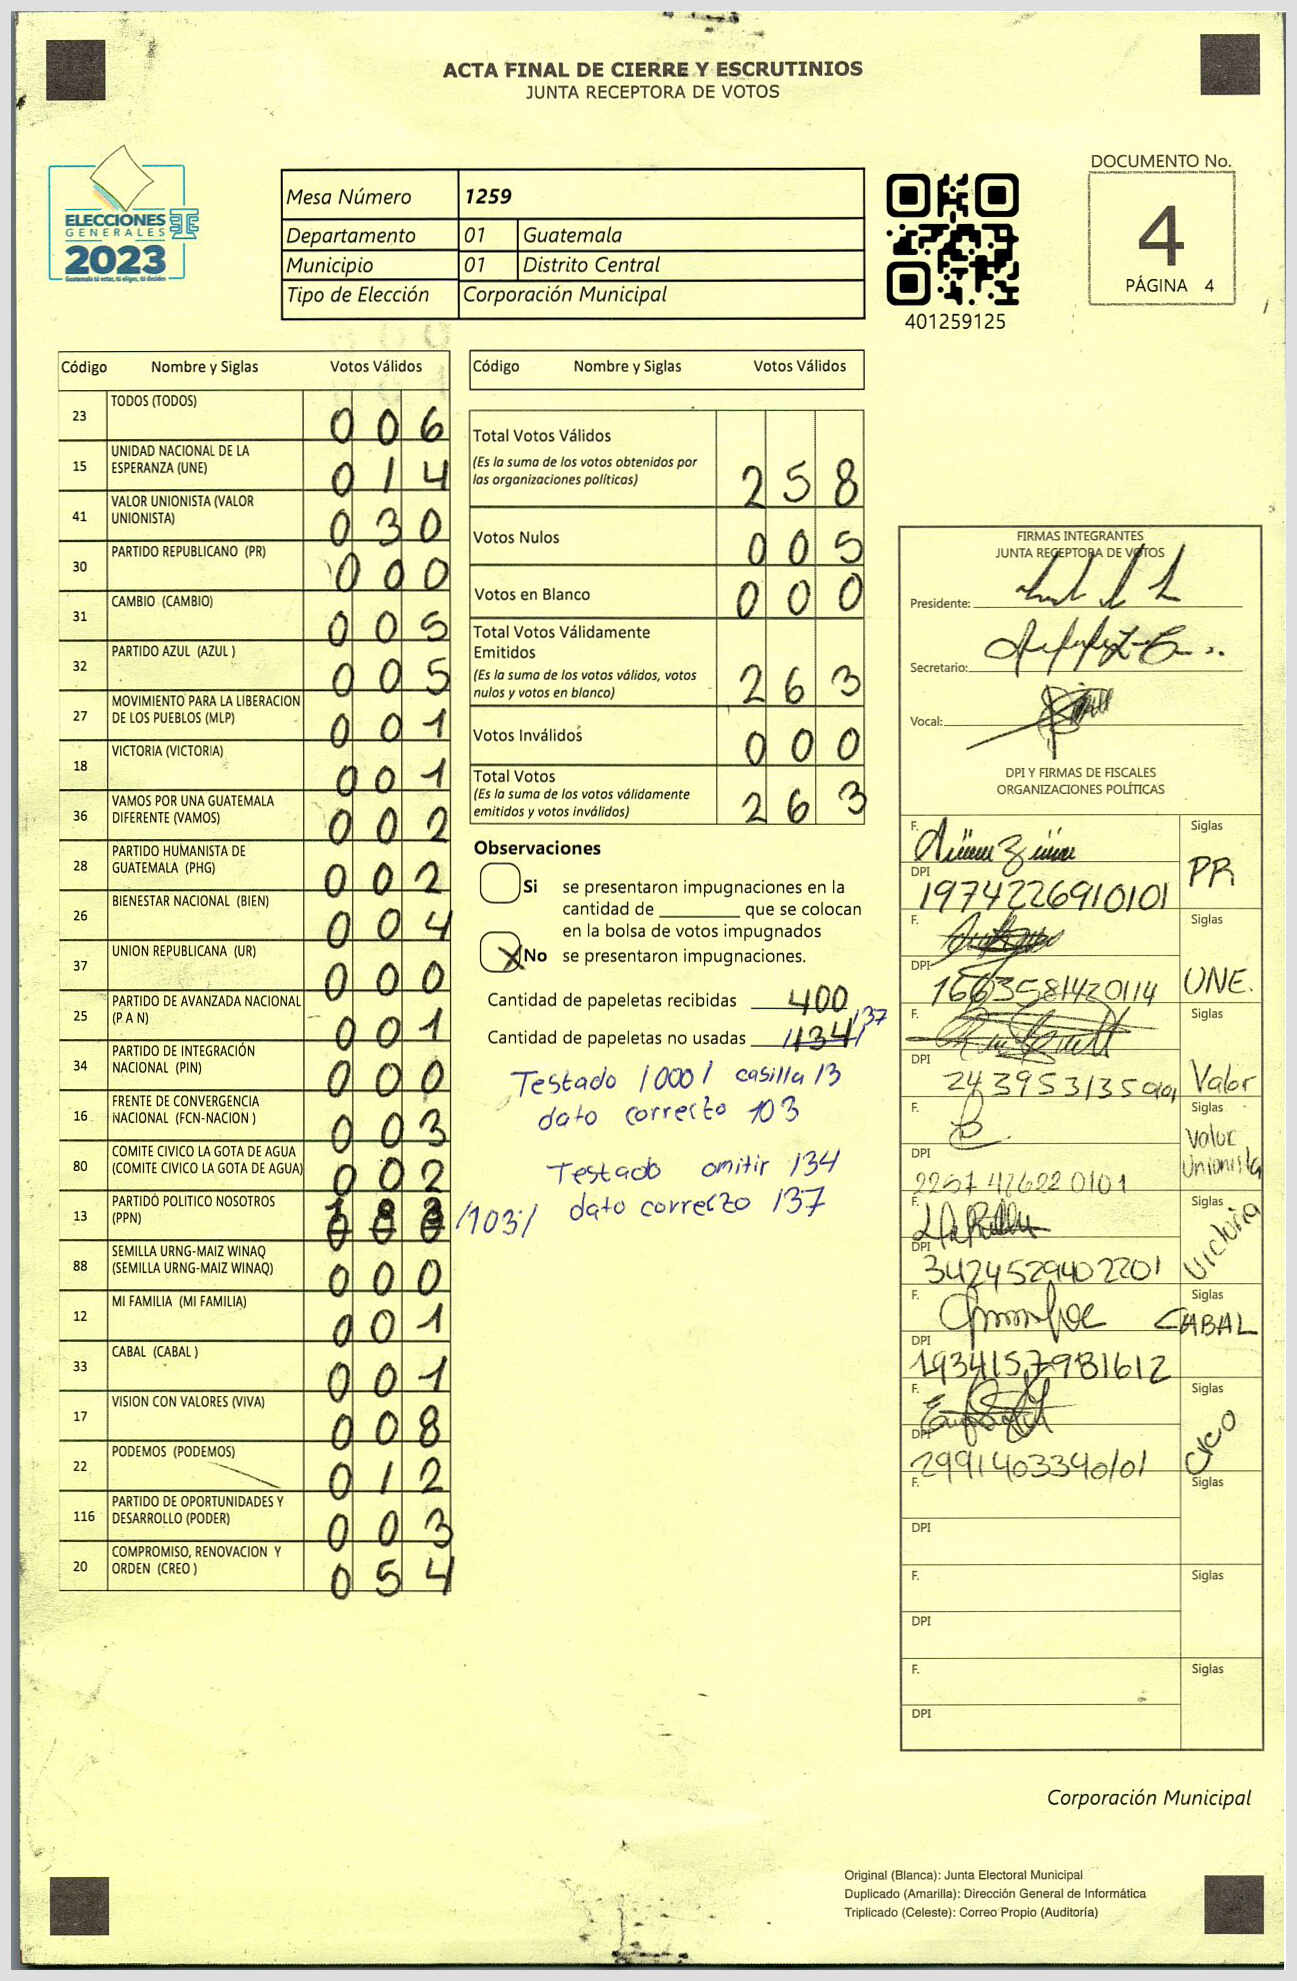 ACTA FINAL DE CIERRE Y ESCRUTINIOS
JUNTA RECEPTORA DE VOTOS
ELECCIONES
GENERALES
2023
Guatemala tú votas, tú eliges, tú decides
Mesa Número 1259
Departamento 01 Guatemala
Municipio 01 Distrito Central
Tipo de Elección Corporación Municipal
401259125
DOCUMENTO No.
4
PÁGINA 4
Código Nombre y Siglas Votos Válidos
23 TODOS (TODOS) 0 0 6
15 UNIDAD NACIONAL DE LA
ESPERANZA (UNE) 0 1 4
41 VALOR UNIONISTA (VALOR
UNIONISTA) 0 3 0
30 PARTIDO REPUBLICANO (PR) 0 0 0
31 CAMBIO (CAMBIO) 0 0 5
32 PARTIDO AZUL (AZUL ) 0 0 5
27 MOVIMIENTO PARA LA LIBERACION
DE LOS PUEBLOS (MLP) 0 0 1
18 VICTORIA (VICTORIA) 0 0 1
36 VAMOS POR UNA GUATEMALA
DIFERENTE (VAMOS) 0 0 2
28 PARTIDO HUMANISTA DE
GUATEMALA (PHG) 0 0 2
26 BIENESTAR NACIONAL (BIEN) 0 0 4
37 UNION REPUBLICANA (UR) 0 0 0
25 PARTIDO DE AVANZADA NACIONAL
(P A N) 0 0 1
34 PARTIDO DE INTEGRACIÓN
NACIONAL (PIN) 0 0 0
16 FRENTE DE CONVERGENCIA
NACIONAL (FCN-NACION ) 0 0 3
80 COMITE CIVICO LA GOTA DE AGUA
(COMITE CIVICO LA GOTA DE AGUA) 0 0 2
13 PARTIDO POLITICO NOSOTROS
(PPN) /103/
88 SEMILLA URNG-MAIZ WINAQ
(SEMILLA URNG-MAIZ WINAQ) 0 0 0
12 MI FAMILIA (MI FAMILIA) 0 0 1
33 CABAL (CABAL ) 0 0 1
17 VISION CON VALORES (VIVA) 0 0 8
22 PODEMOS (PODEMOS) 0 1 2
116 PARTIDO DE OPORTUNIDADES Y
DESARROLLO (PODER) 0 0 3
20 COMPROMISO, RENOVACION Y
ORDEN (CREO ) 0 5 4
Código Nombre y Siglas Votos Válidos
Total Votos Válidos
(Es la suma de los votos obtenidos por
las organizaciones políticas) 2 5 8
Votos Nulos 0 0 5
Votos en Blanco 0 0 0
Total Votos Válidamente
Emitidos
(Es la suma de los votos válidos, votos
nulos y votos en blanco) 2 6 3
Votos Inválidos 0 0 0
Total Votos
(Es la suma de los votos válidamente
emitidos y votos inválidos) 2 6 3
Observaciones
Si se presentaron impugnaciones en la
cantidad de ________ que se colocan
en la bolsa de votos impugnados
X No se presentaron impugnaciones.
Cantidad de papeletas recibidas 400
Cantidad de papeletas no usadas /134/ 137
Testado /000/ casilla 13
dato correcto 103
Testado omitir 134
dato correcto 137
FIRMAS INTEGRANTES
JUNTA RECEPTORA DE VOTOS
Presidente:
Secretario:
Vocal:
DPI Y FIRMAS DE FISCALES
ORGANIZACIONES POLÍTICAS
F. Siglas
PR
DPI
1974226910101
F. Siglas
UNE.
DPI
1663581420114
F. Siglas
Valor
DPI
2439531350101
F. Siglas
Valor
Unionista
DPI
2257426220101
F. Siglas
Victoria
DPI
3424529402201
F. Siglas
CABAL
DPI
1934157981612
F. Siglas
Creo
DPI
2991403340101
F. Siglas
DPI
F. Siglas
DPI
F. Siglas
DPI
Corporación Municipal
Original (Blanca): Junta Electoral Municipal
Duplicado (Amarilla): Dirección General de Informática
Triplicado (Celeste): Correo Propio (Auditoría)